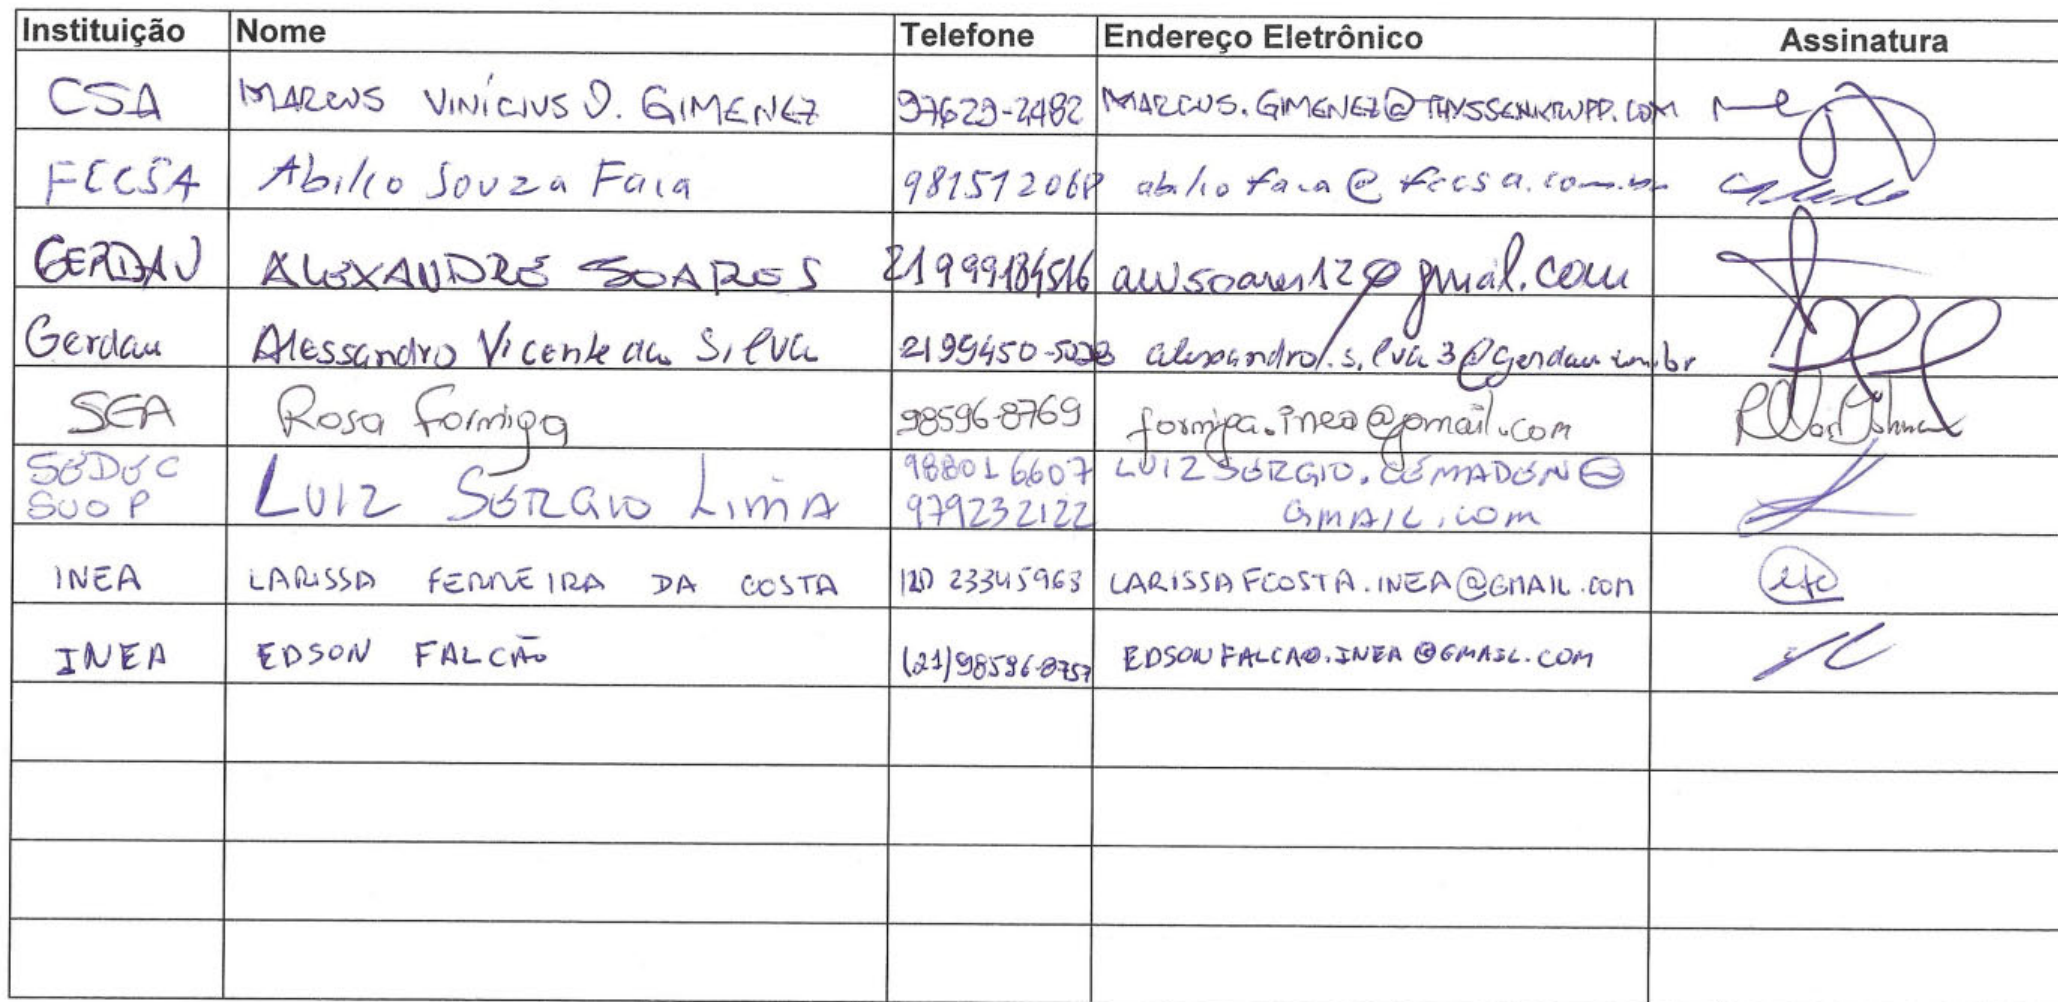 Instituição Nome Telefone Endereço Eletrônico Assinatura
CSA MARCUS VINÍCIUS D. GIMENEZ 97629-2482 MARCUS.GIMENEZ@THYSSENKRUPP.COM
FCCSA Abilio Souza Faia 981512068 abilio faia@fccsa.com.br
GERDAU ALEXANDRE SOARES 21999184516 @gmail.com
Gerdau Alessandro Vicente da Silva alessandro.silva3@gerdau.com.br
SEA Rosa Formiga 98596-8769 formiga.inea@gmail.com
SEDEC 988016607 LUIZSERGIO.CEMADEN@
SUOP LUIZ SÉRGIO LIMA 979232122 GMAIL.COM
INEA LARISSA FERREIRA DA COSTA (21) 23345963 LARISSAFCOSTA.INEA@GMAIL.COM
INEA EDSON FALCÃO (21)98596-8757 EDSONFALCAO.INEA@GMAIL.COM